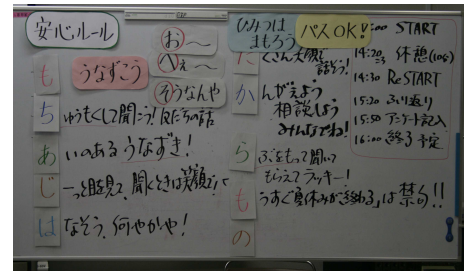 安心ルール
お～
へぇ～
そうなんや
うなずこう
も
ちゅうもくして聞こう!友だちの話
あいのあるうなずき!
じーっと目を見て、聞くときは笑顔で!
はなそう、何やかや!
ひみつは
まもろう
パスOK!
たくさん笑顔で
話そう!
かんがえよう
相談しよう
みんなでね!
らぶをもって聞いて
もらえてラッキー!
もうすぐ夏休みが終わる」は禁句!!
の
00 START
14:20 休憩(10分)
14:30 ReSTART
15:20 ふり返り
15:50 アンケート記入
16:00 終了予定